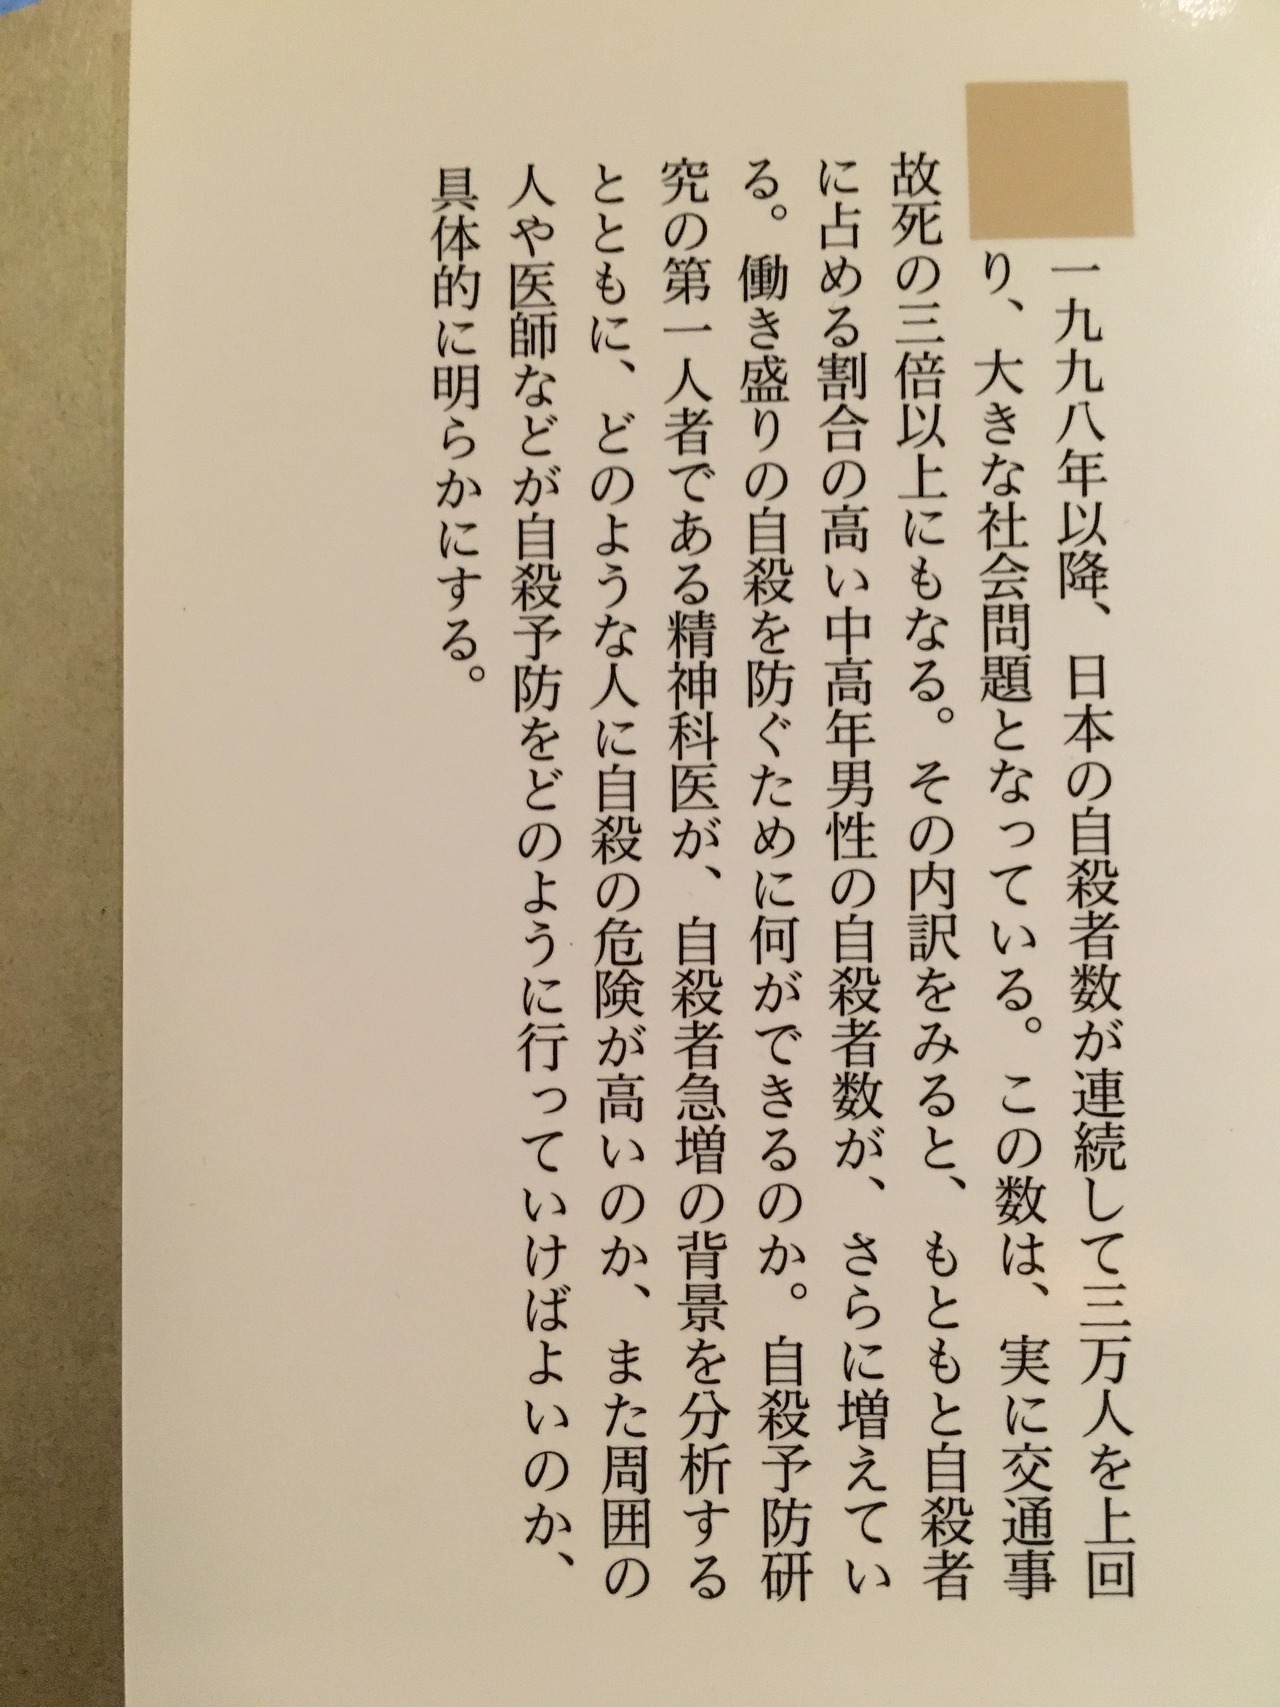 一九九八年以降、日本の自殺者数が連続して三万人を上回
り、大きな社会問題となっている。この数は、実に交通事
故死の三倍以上にもなる。その内訳をみると、もともと自殺者
に占める割合の高い中高年男性の自殺者数が、さらに増えてい
る。働き盛りの自殺を防ぐために何ができるのか。自殺予防研
究の第一人者である精神科医が、自殺者急増の背景を分析する
とともに、どのような人に自殺の危険が高いのか、また周囲の
人や医師などが自殺予防をどのように行っていけばよいのか、
具体的に明らかにする。